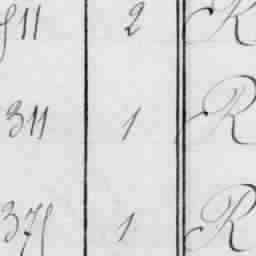 511 2 R
311 1 R
371 1 R